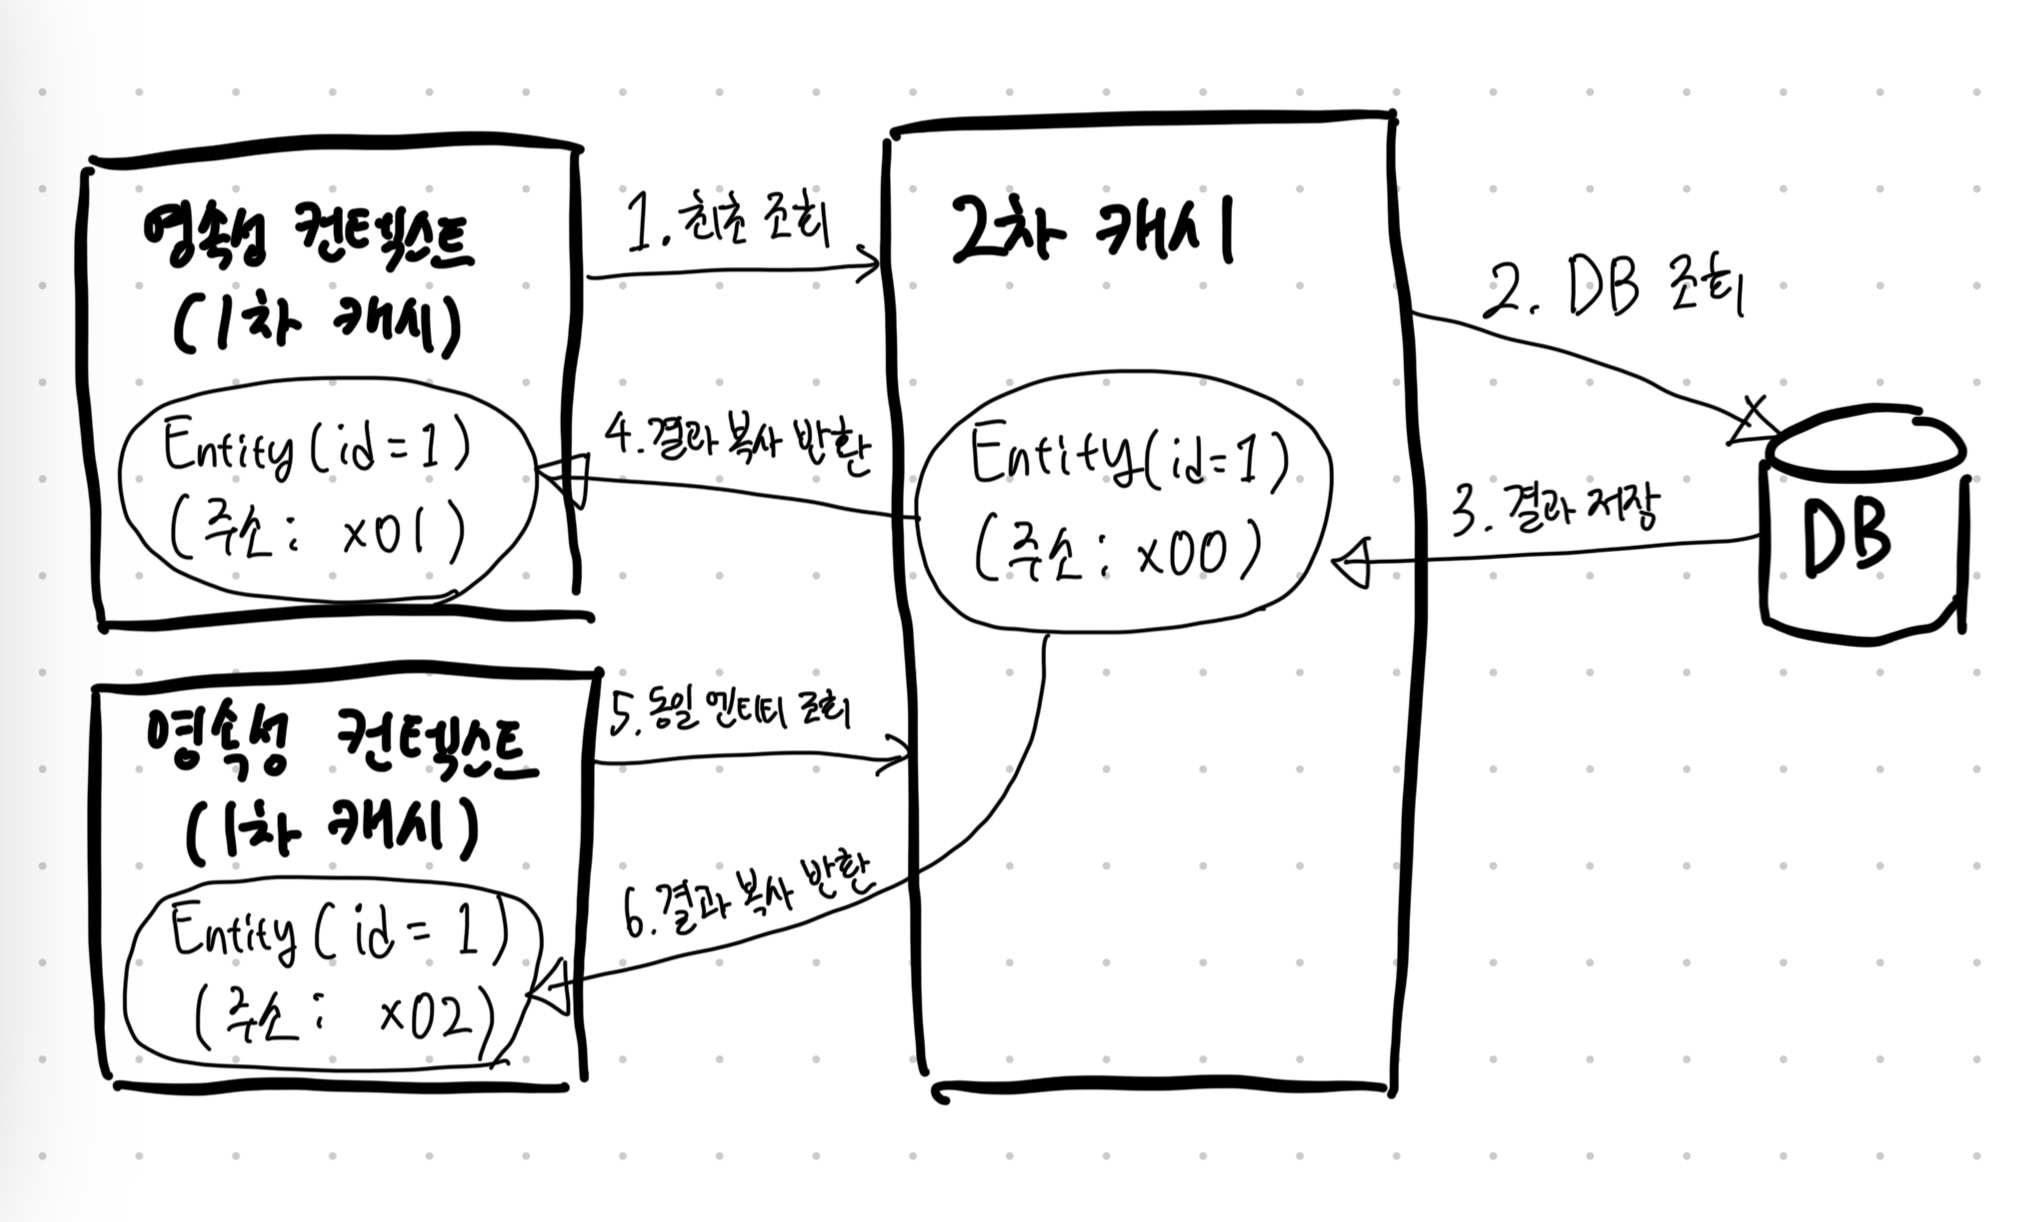 영속성 컨텍스트
(1차 캐시)
Entity(id=1)
(주소: x01)
1. 최초 조회
2차 캐시
2. DB 조회
4. 결과 복사 반환
Entity(id=1)
(주소: x00)
3. 결과 저장
DB
영속성 컨텍스트
(1차 캐시)
Entity(id=1)
(주소: x02)
5. 동일 엔티티 조회
6. 결과 복사 반환